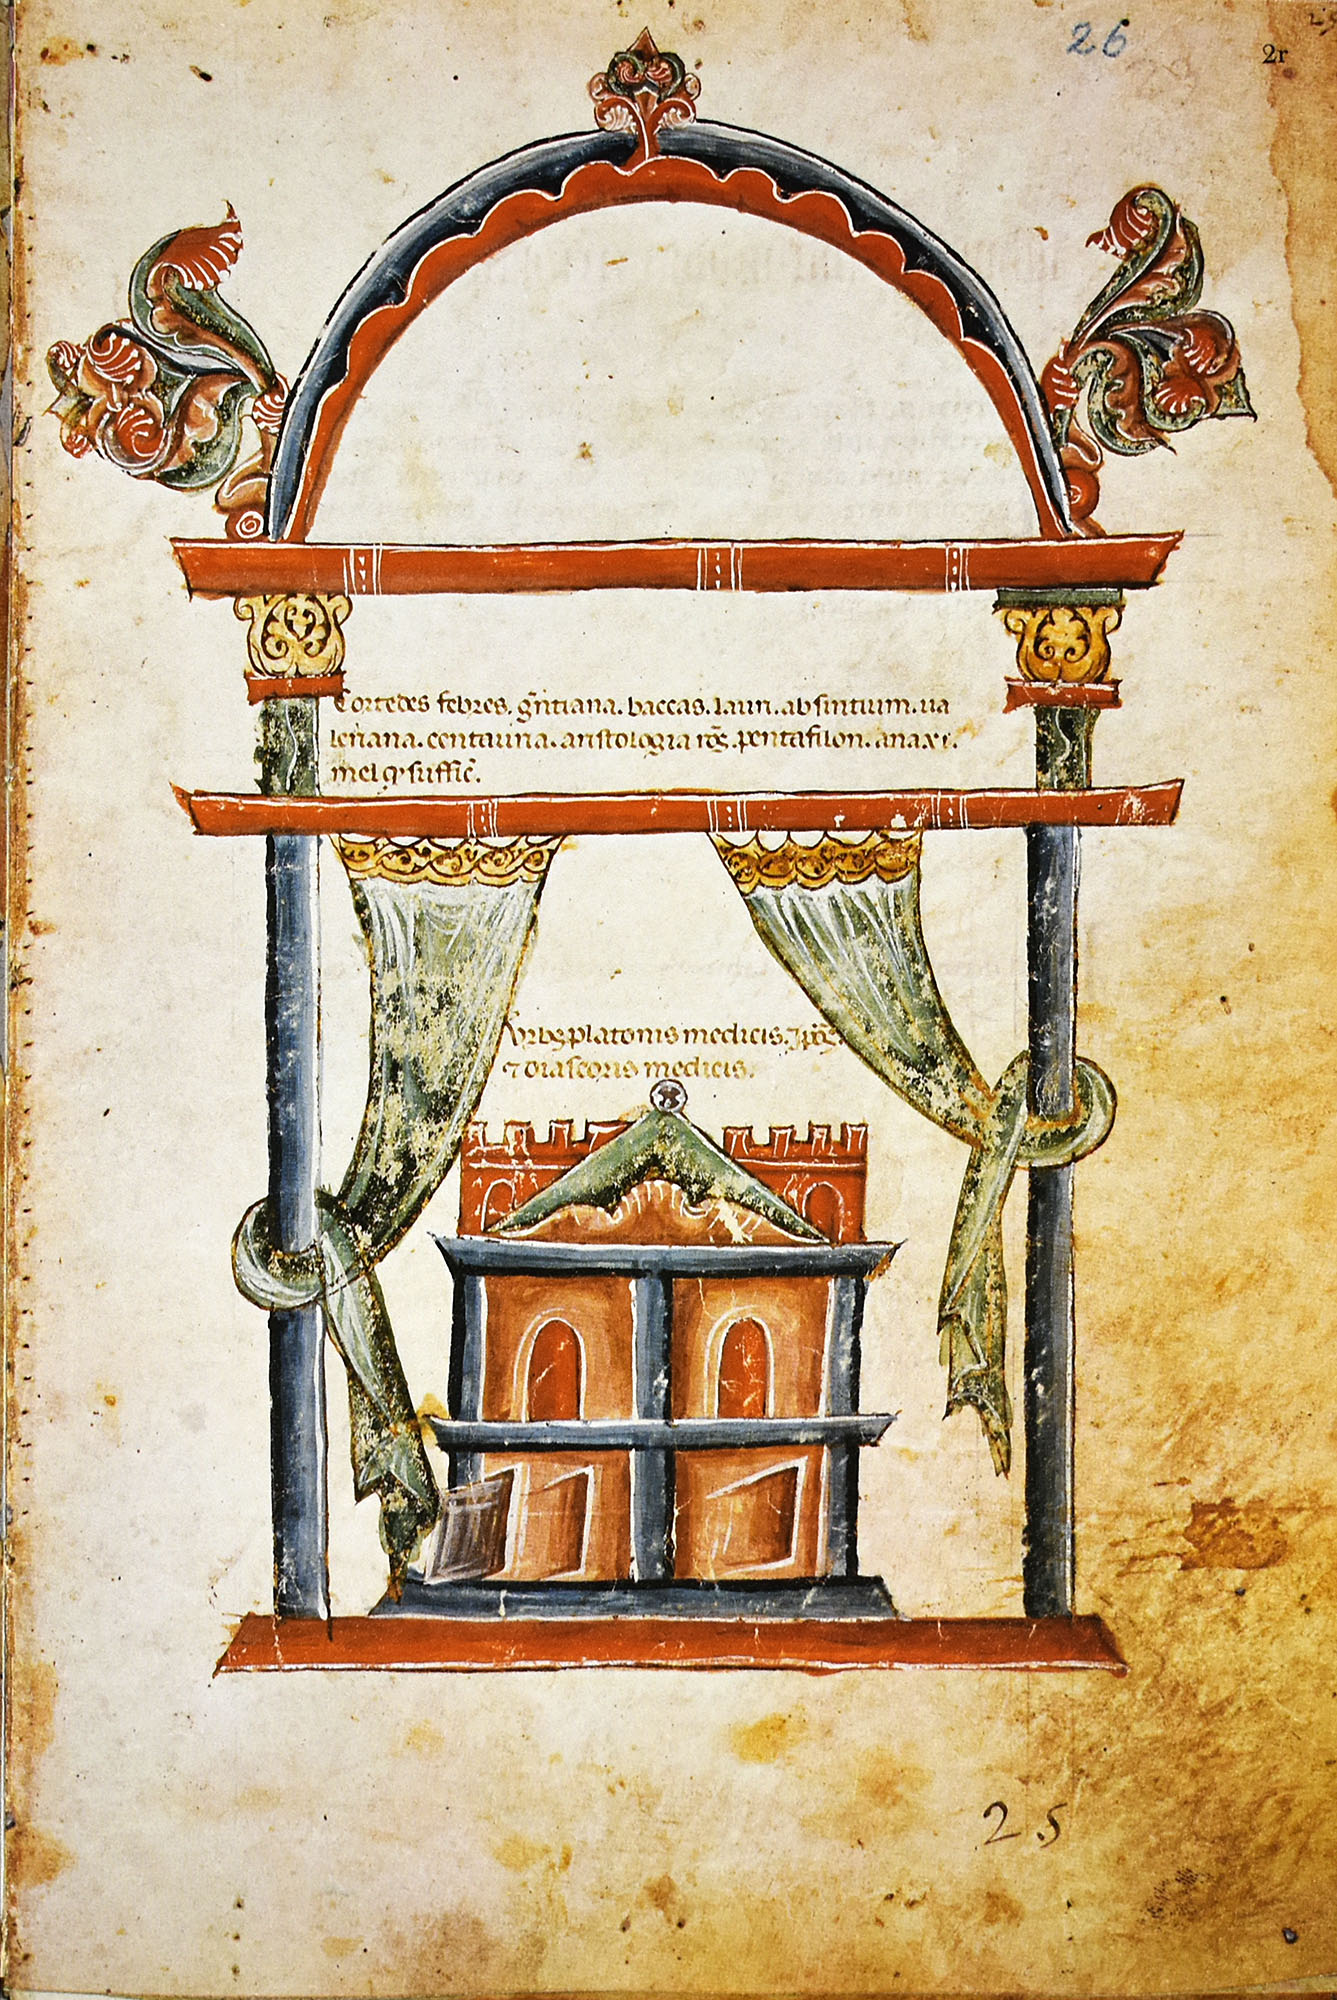 26
2r
Cortedes febres. g̅ntiana. baccas. lauri. absintium. ua
leriana. centauria. aristologia ro̅g. pentafilon. ana xi.
mel qͥ suffic̅.
Vrbs platonis medicis.
⁊ diascoris medicis.
25